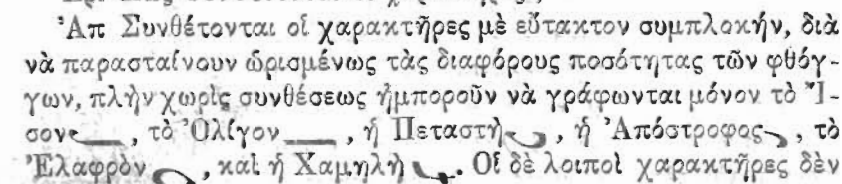 Ἀπ Συνθέτονται οἱ χαρακτῆρες μὲ εὔτακτον συμπλοκήν, διὰ
νὰ παρασταίνουν ὡρισμένως τὰς διαφόρους ποσότητας τῶν φθόγ-
γων, πλὴν χωρὶς συνθέσεως ἠμποροῦν νὰ γράφωνται μόνον τὸ Ἴ-
σον , τὸ Ὀλίγον , ἡ Πεταστὴ , ἡ Ἀπόστροφος , τὸ
Ἐλαφρὸν , καὶ ἡ Χαμηλὴ . Οἱ δὲ λοιποὶ χαρακτῆρες δὲν